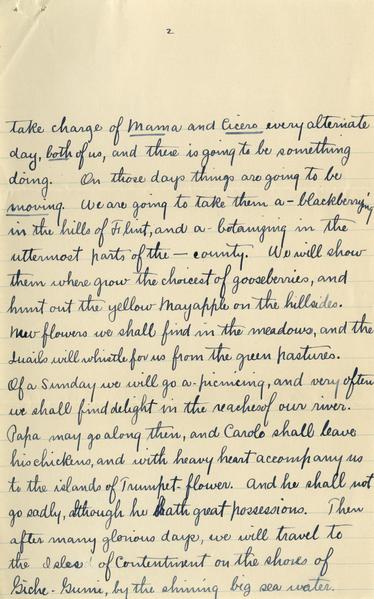 2
take charge of Mama and Cicero every alternate
day, both of us, and there is going to be something
doing. On those days things are going to be
moving. We are going to take them a-blackberrying
in the hills of Flint, and a-botanizing in the
uttermost parts of the — county. We will show
them where grow the choicest of gooseberries, and
hunt out the yellow Mayapple on the hillsides.
New flowers we shall find in the meadows, and the
Quails will whistle for us from the green pastures.
Of a Sunday we will go a-picnicing, and very often
we shall find delight in the reaches of our river.
Papa may go along then, and Carolo shall leave
his chickens, and with heavy heart accompany us
to the islands of Trumpet-flower. And he shall not
go sadly, although he hath great possessions. Then
after many glorious days, we will travel to
the Isles of Contentment on the shores of
Giche-Gumi, by the shining big sea water.